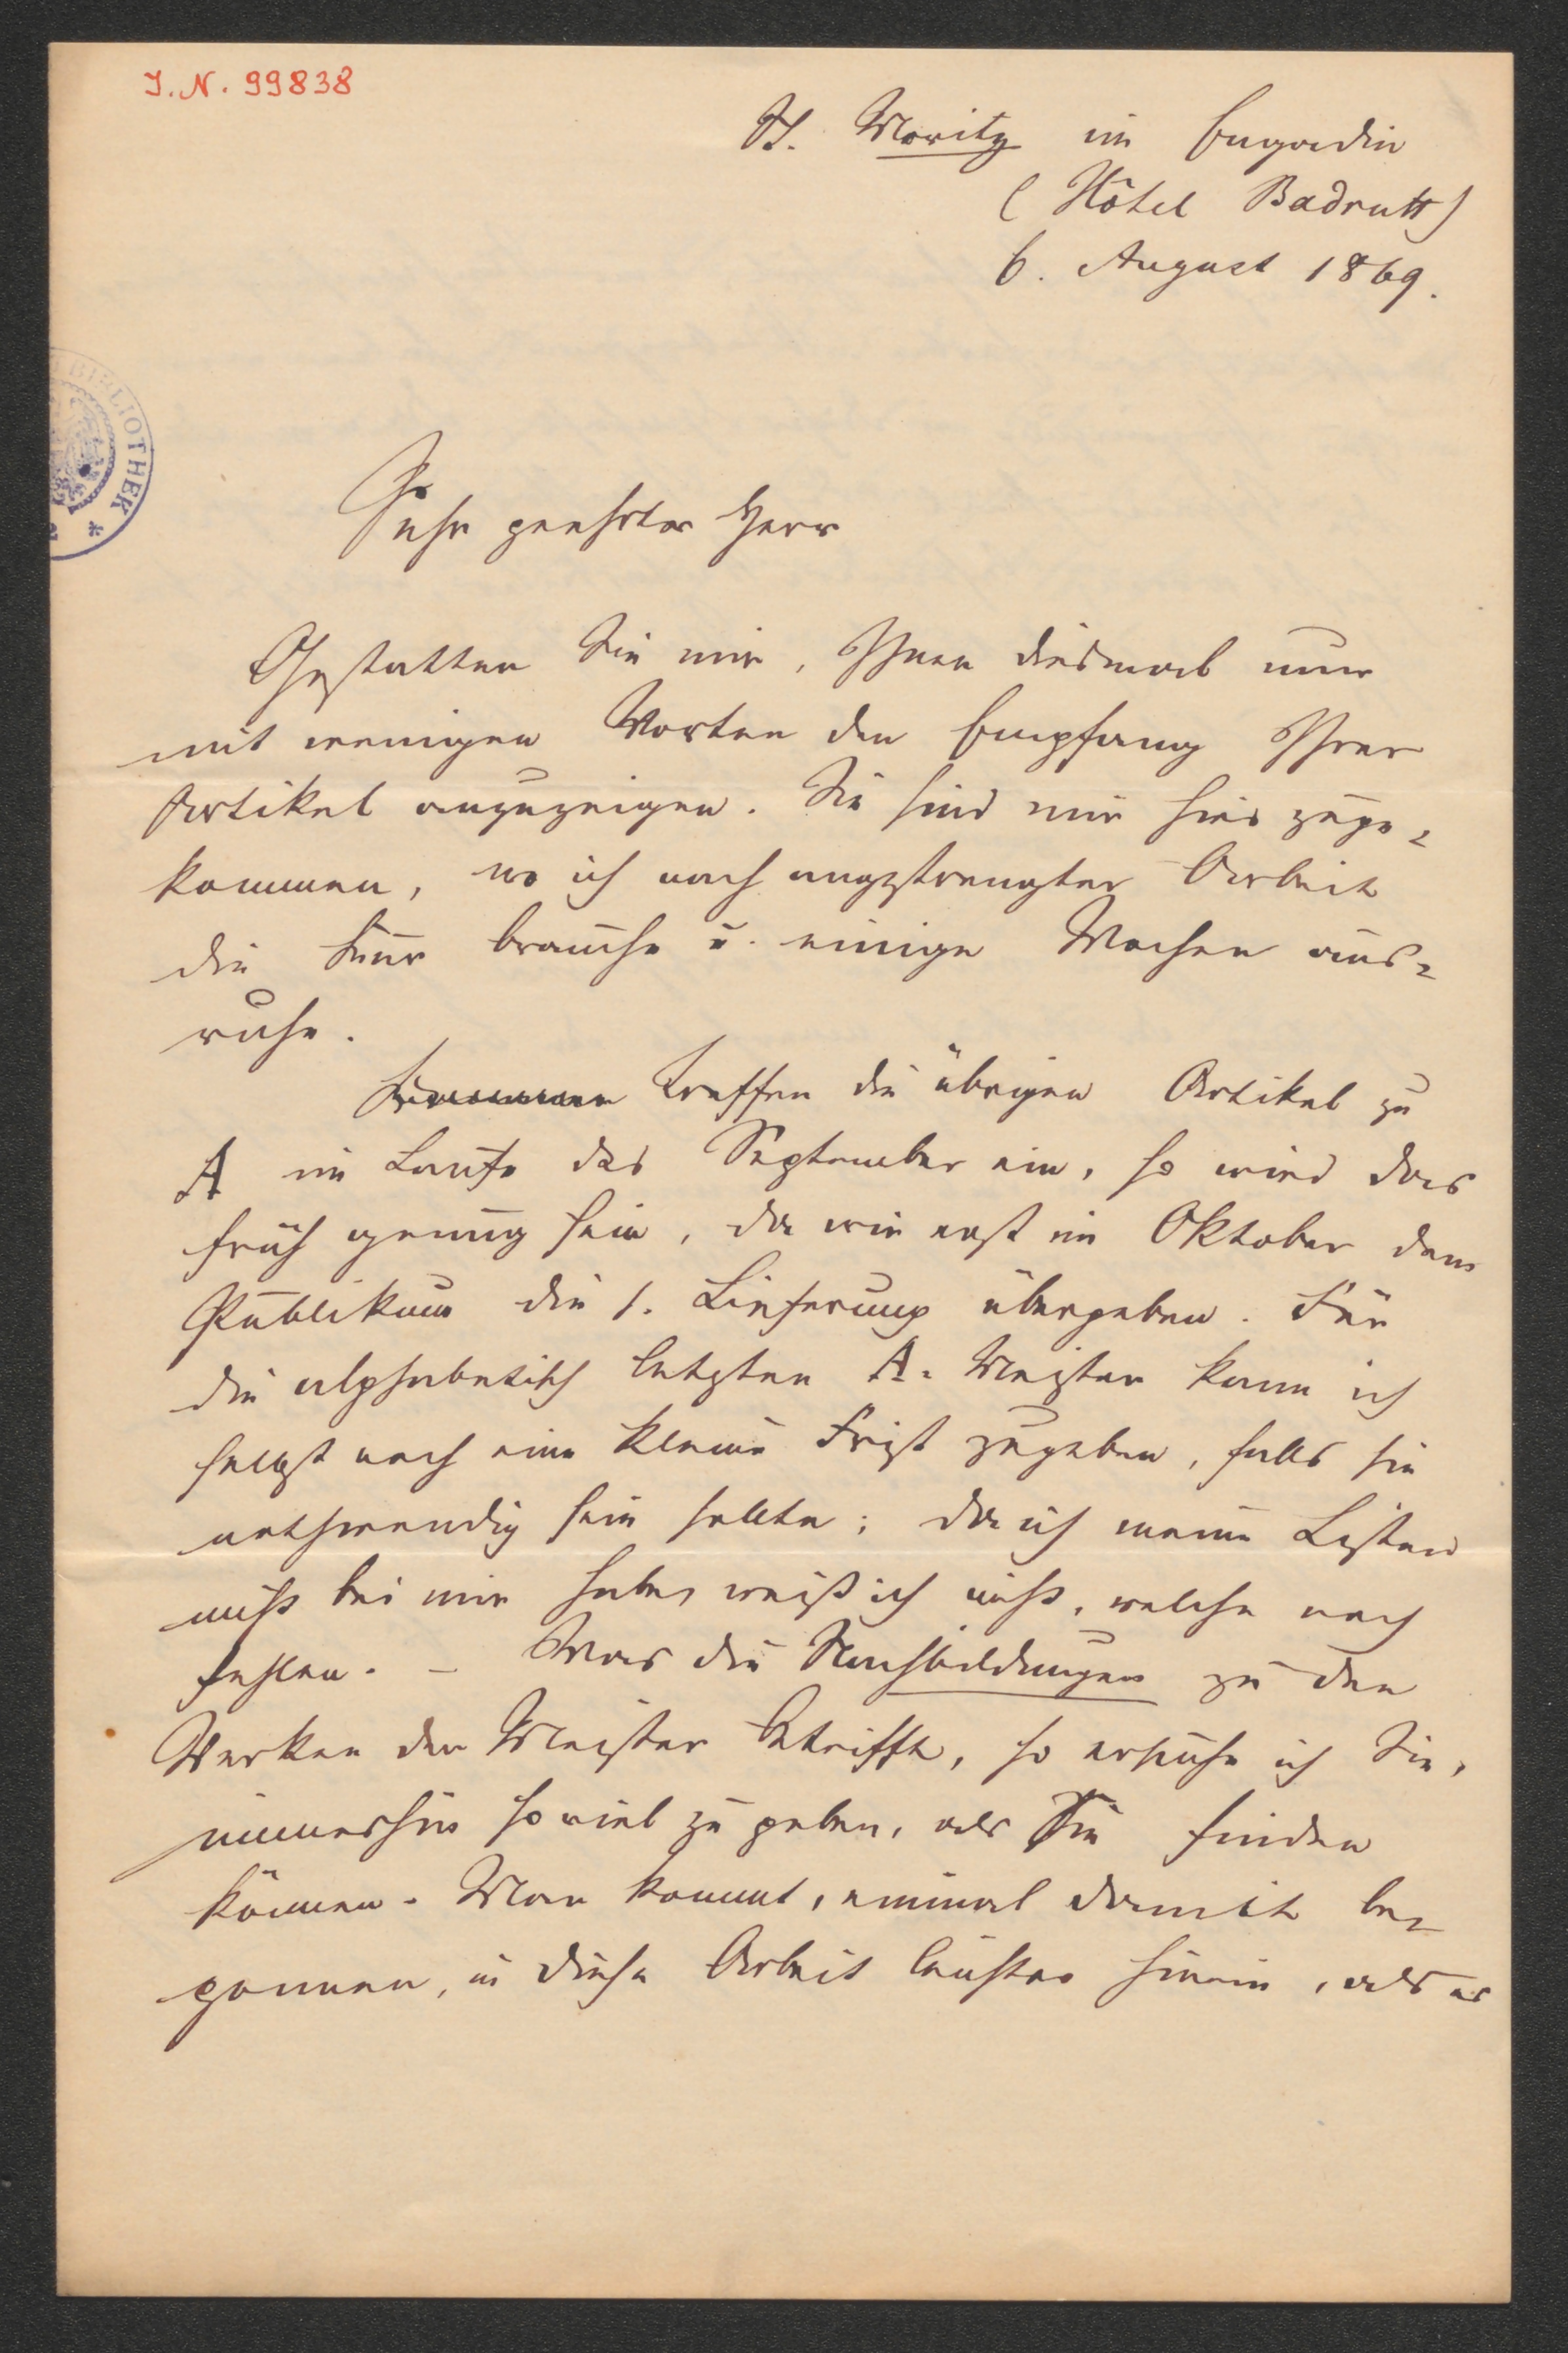 I.N. 99838
St. Moritz im Engadin
(Hôtel Badrutt)
6. August 1869.
BIBLIOTHEK
Sehr geehrter Herr
Gestatten Sie mir, Ihnen diesmal nur
mit wenigen Worten den Empfang Ihrer
Artikel anzuzeigen. Sie sind mir hier zuge-
kommen, wo ich nach angestrengter Arbeit
die Kur brauche u. einige Wochen aus-
ruhe.
Treffen die übrigen Artikel zu
A im Laufe des September ein, so wird das
früh genug sein, da wir erst im Oktober dem
Publikum die 1. Lieferung übergeben. Für
die alphabetisch letzten A-Meister kann ich
selbst noch eine kleine Frist zugeben, falls sie
nothwendig sein sollte; da ich meine Listen
nicht bei mir habe, weiß ich nicht, welche noch
fehlen. – Was die Nachbildungen zu den
Werken der Meister betrifft, so ersuche ich Sie,
immerhin soviel zu geben, als Sie finden
können. Man kommt, einmal damit be-
gonnen, in diese Arbeit leichter hinein, als es